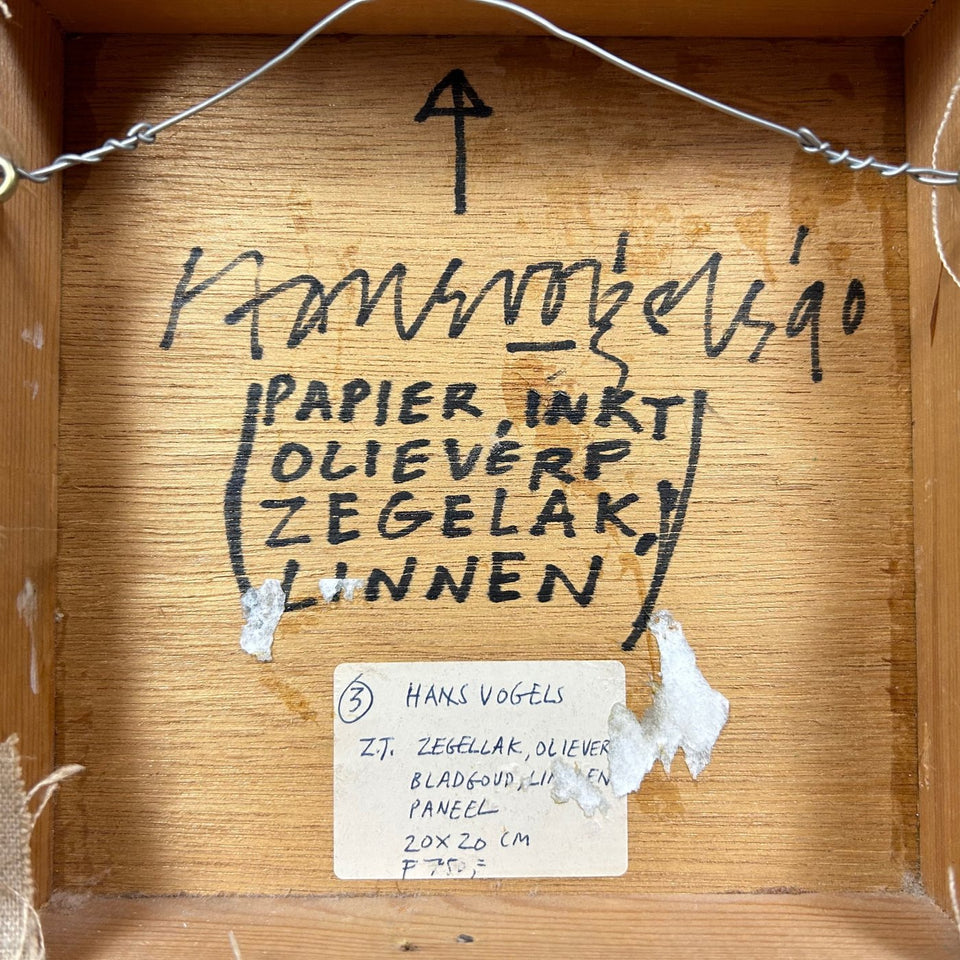 Hans vogels '90
(PAPIER, INKT
OLIEVERF
ZEGELAK,
LINNEN)
3 HANS VOGELS
Z.T. ZEGELLAK, OLIEVER
BLADGOUD, LINNEN
PANEEL
20X20 CM
F 750,=